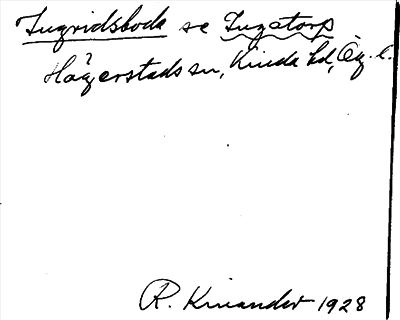 Ingridsboda se Ingatorp
Hägerstads sn, Kinda hd, Ög. l.
R. Kinander 1928